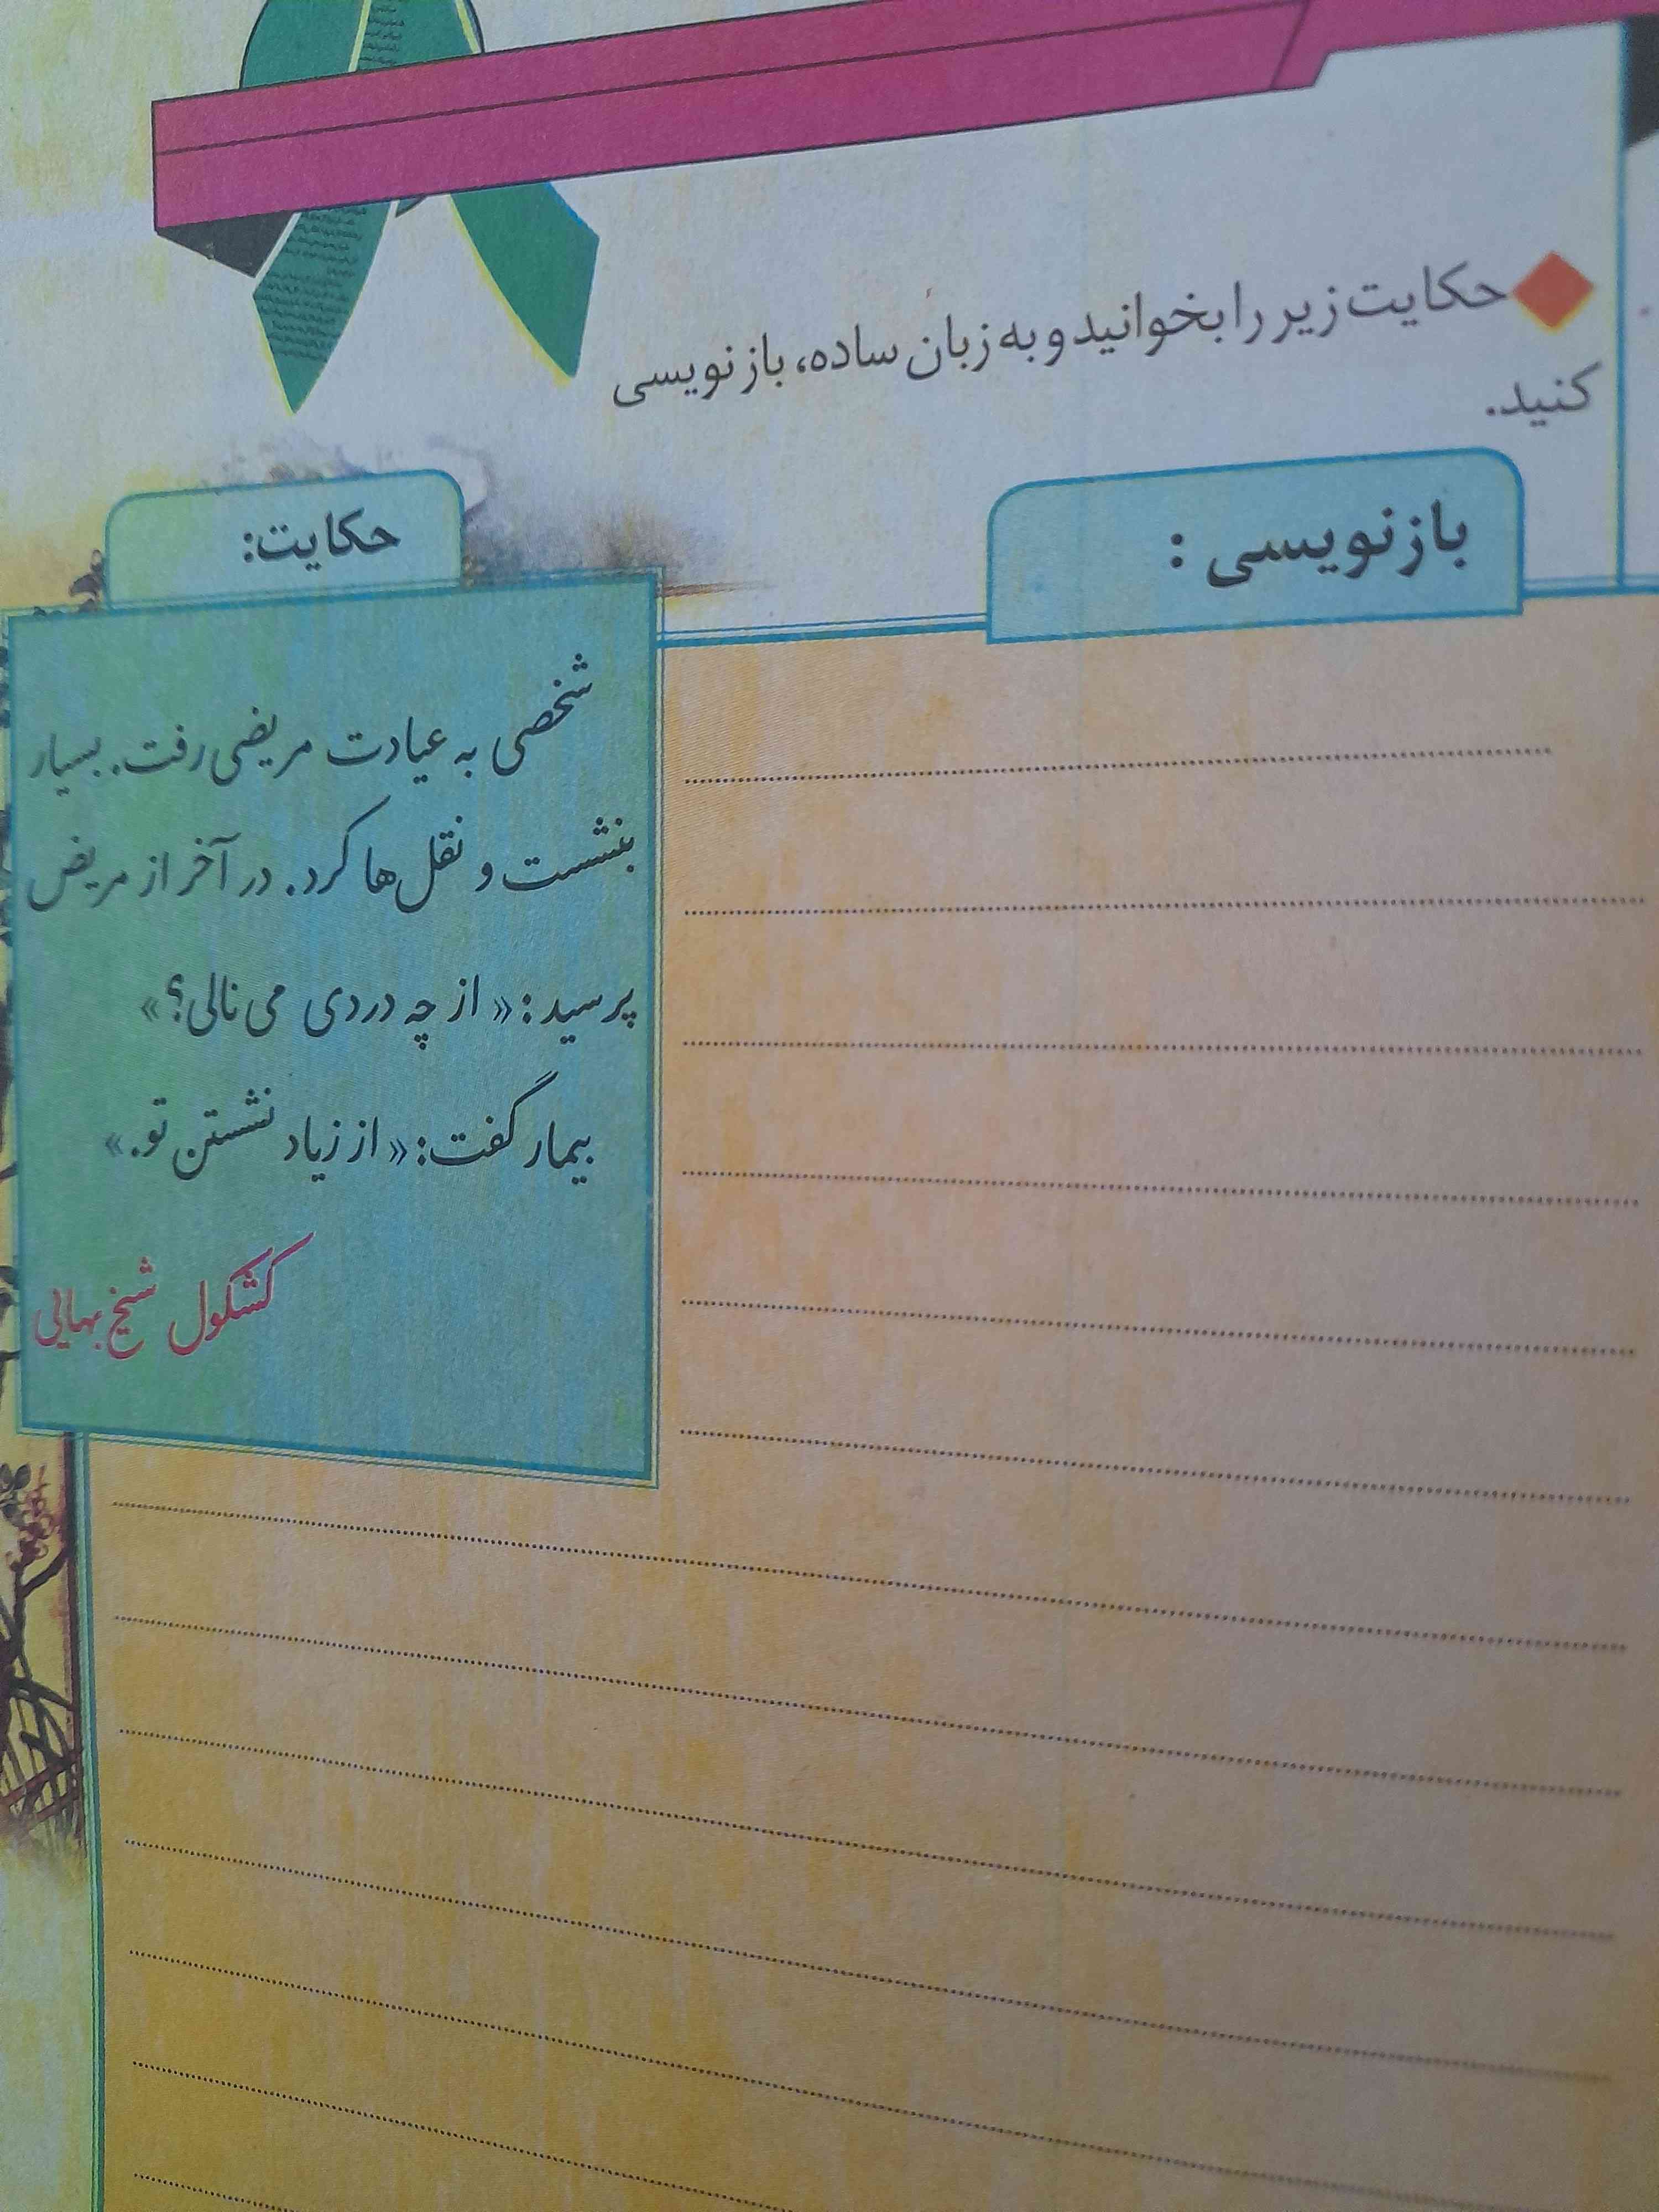 حکایت زیر را بخوانید و به زبان ساده، بازنویسی
کنید.
بازنویسی :
حکایت:
شخصی به عیادت مریضی رفت. بسیار
بنشست و نقل‌ها کرد. در آخر از مریض
پرسید: « از چه دردی می‌نالی؟ »
بیمار گفت: « از زیاد نشستن تو. »
کشکول شیخ بهایی